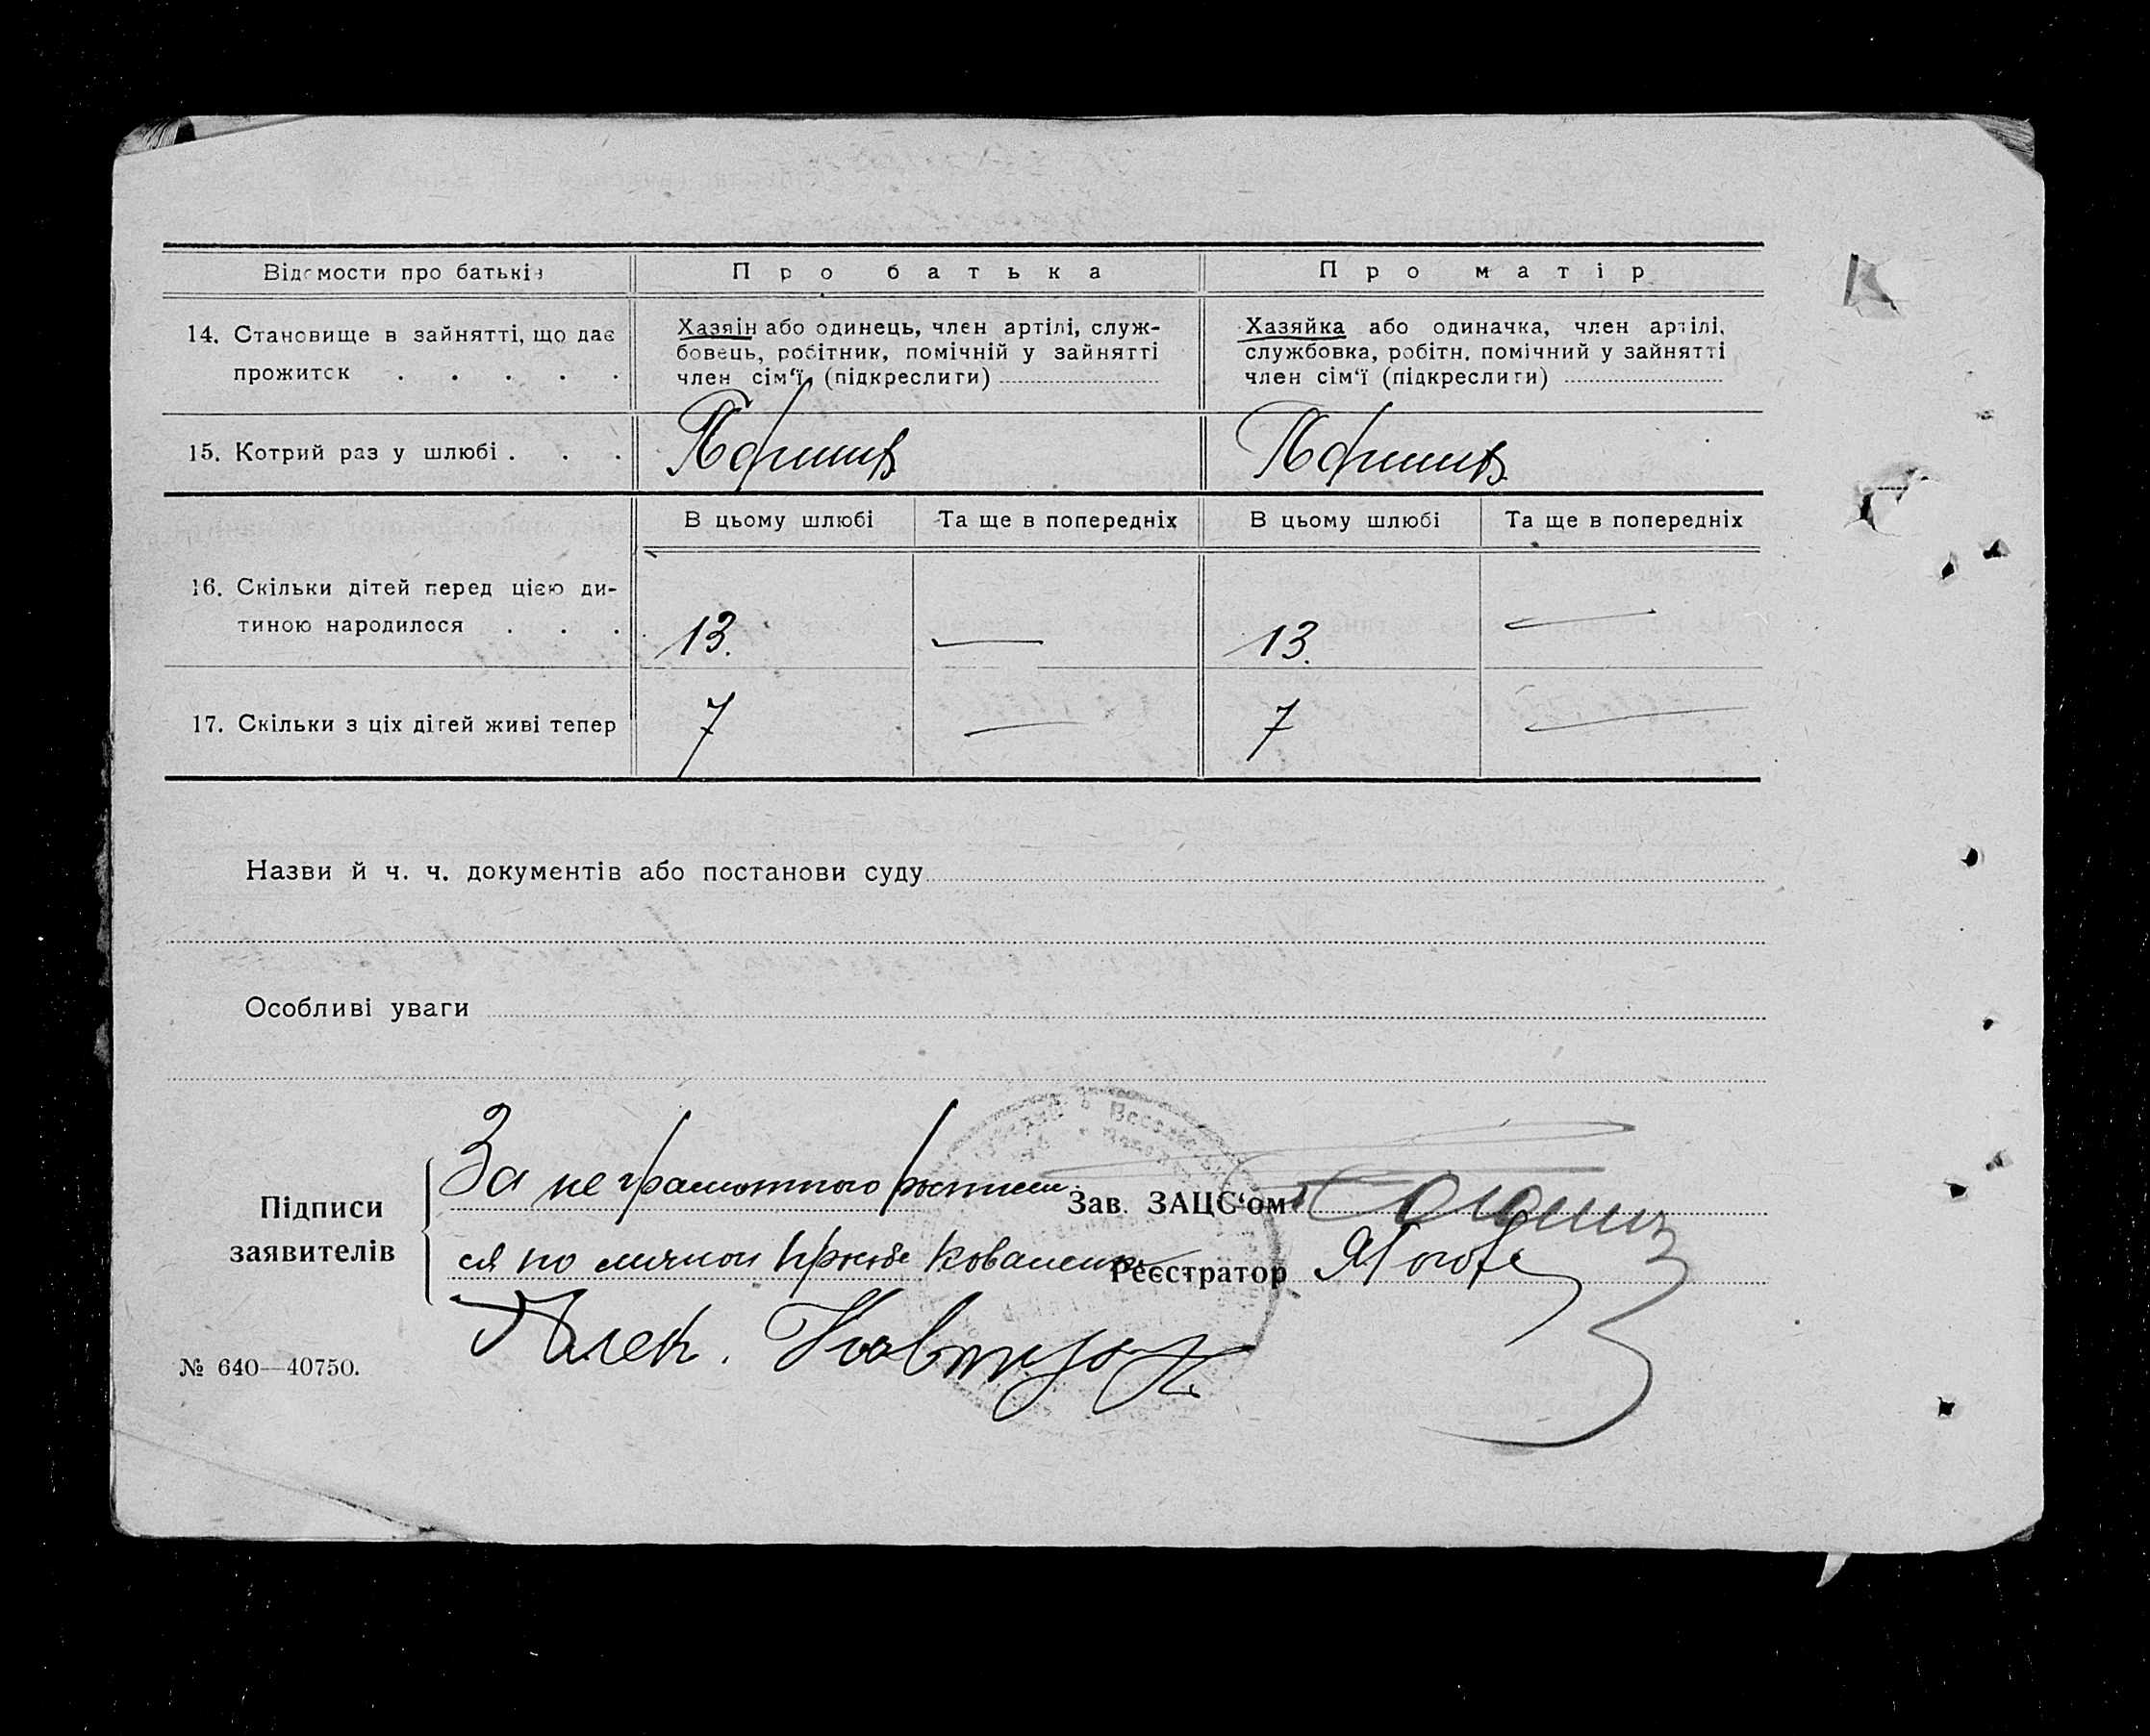 Відомости про батьків
Про батька
Про матір
14. Становище в зайнятті, що дає
прожиток . . . . .
Хазяїн або одинець, член артілі, служ-
бовець, робітник, помічній у зайнятті
член сім‘ї (підкреслити)
Хазяйка або одиначка, член артілі,
службовка, робітн. помічний у зайнятті
член сім‘ї (підкреслити)
15. Котрий раз у шлюбі . . .
В цьому шлюбі
Та ще в попередніх
В цьому шлюбі
Та ще в попередніх
16. Скільки дітей перед цією ди-
тиною народилося . . .
13. —
13. —
17. Скільки з ціх дітей живі тепер
7 —
7 —
Назви й ч. ч. документів або постанови суду
Особливі уваги
Підписи
заявителів
За неграмотного росписал
ся по личной прозьбе Коваленко
Алек.
Зав. ЗАЦС‘ом
Реєстратор
№ 640—40750.